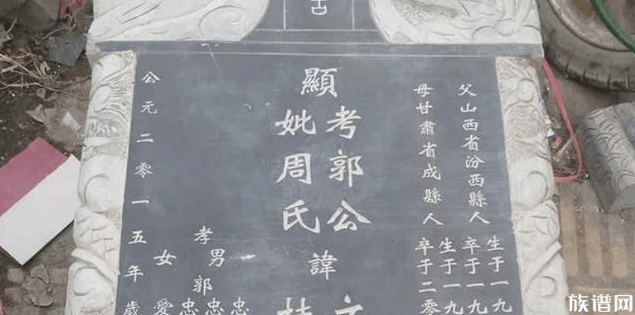 古
父山西省汾西縣人
生于一九
卒于一九
母甘肅省成縣人
生于一九
卒于二零
顯
考郭公
妣周氏
諱
孝男郭
忠
忠
忠
女愛
公元二零一五年歲
族谱网
www.zupu.cn